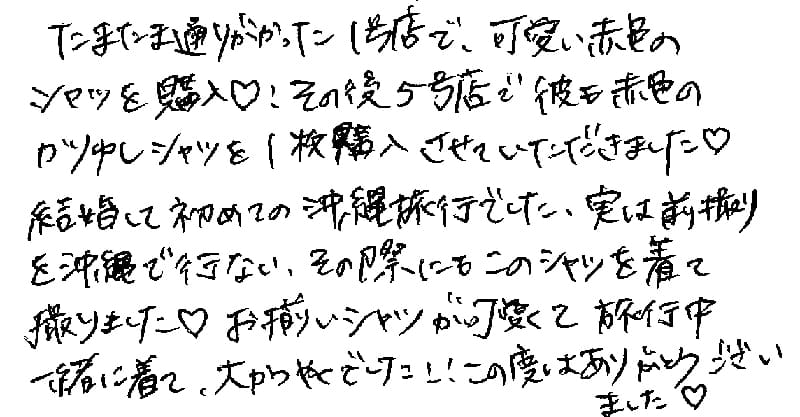 たまたま通りがかった1号店で、可愛い赤色の
シャツを購入♡!その後5号店で彼も赤色の
かりゆしシャツを1枚購入させていただきました♡
結婚して初めての沖縄旅行でした、実は前撮り
を沖縄で行ない、その際にもこのシャツを着て
撮りました♡お揃いシャツが可愛くて旅行中
一緒に着て、大かつやくでした!!この度はありがとうござい
ました♡